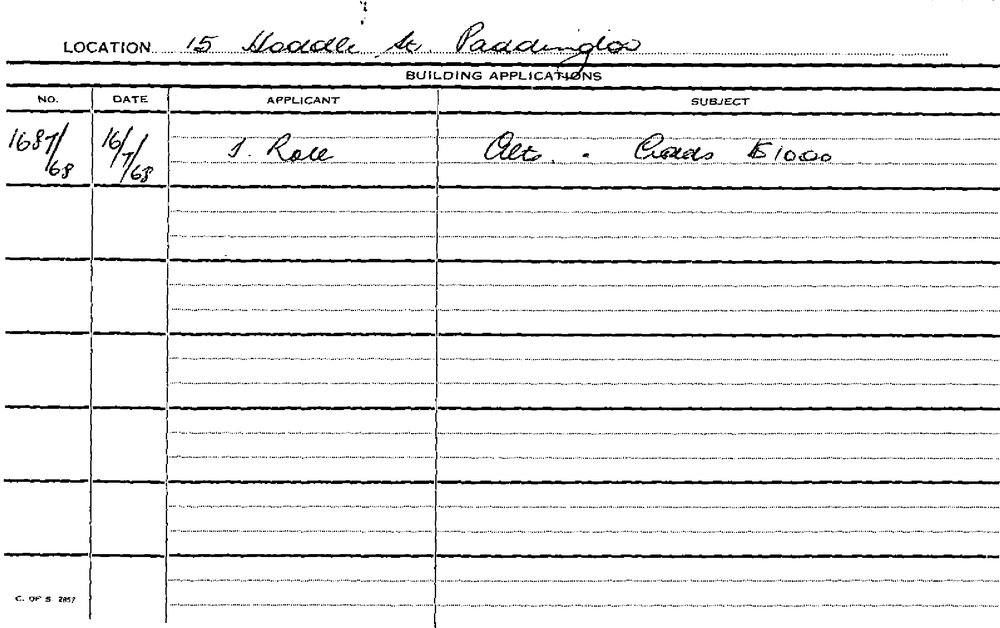 LOCATION 15 Hoddle St. Paddington
BUILDING APPLICATIONS
NO. DATE APPLICANT SUBJECT
1687/68 16/7/68 J. Role Alts. - $1000
C. OF S. 2857